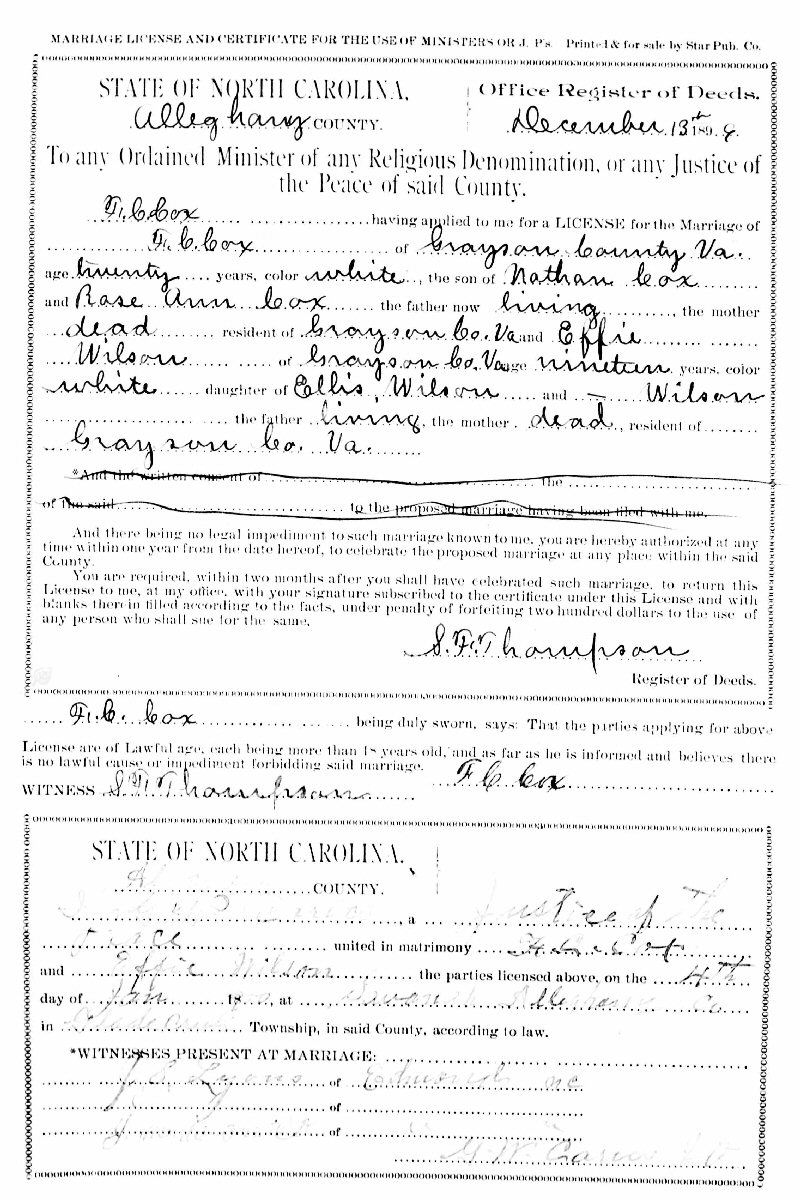 MARRIAGE LICENSE AND CERTIFICATE FOR THE USE OF MINISTERS OR J. P's. Printed & for sale by Star Pub. Co.
STATE OF NORTH CAROLINA,
Alleghany COUNTY.
Office Register of Deeds.
December 13th 1898
To any Ordained Minister of any Religious Denomination, or any Justice of
the Peace of said County.
F. C. Cox having applied to me for a LICENSE for the Marriage of
F. C. Cox of Grayson County Va.
age twenty years, color white, the son of Nathan Cox
and Rose Ann Cox the father now living, the mother
dead resident of Grayson Co. Va and Effie
Wilson of Grayson Co. Va age nineteen years, color
white daughter of Ellis Wilson and — Wilson
the father living, the mother dead, resident of
Grayson Co. Va.
*And the written consent of the
of the said to the proposed marriage having been filed with me.
And there being no legal impediment to such marriage known to me, you are hereby authorized at any
time within one year from the date hereof, to celebrate the proposed marriage at any place within the said
County.
You are required, within two months after you shall have celebrated such marriage, to return this
License to me, at my office, with your signature subscribed to the certificate under this License and with
blanks therein filled according to the facts, under penalty of forfeiting two hundred dollars to the use of
any person who shall sue for the same.
S. F. Thompson
Register of Deeds.
F. C. Cox being duly sworn, says: That the parties applying for above
License are of Lawful age, each being more than 18 years old, and as far as he is informed and believes there
is no lawful cause or impediment forbidding said marriage.
F C Cox
WITNESS S. F. Thompson
STATE OF NORTH CAROLINA,
COUNTY.
, a Justice of the
Peace united in matrimony
and Effie Wilson the parties licensed above, on the 4th
day of Jan 18 , at Co
in Township, in said County, according to law.
*WITNESSES PRESENT AT MARRIAGE:
J. S. Lyons of Edmond NC
of
of
G. W.